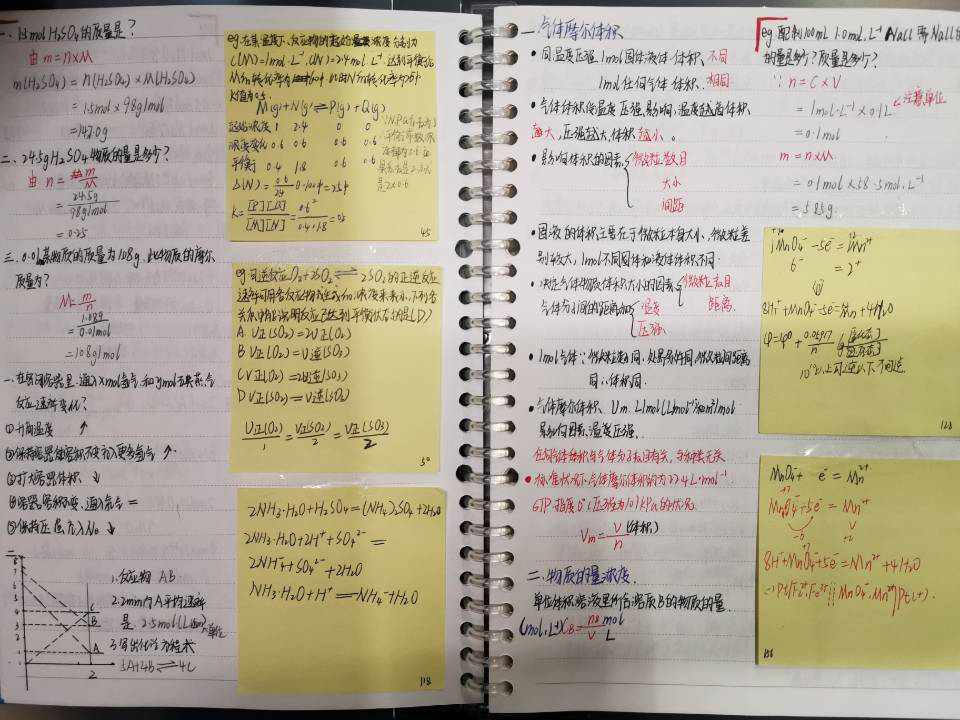 一、1.5mol H₂SO₄的质量是？
由 m=n×M
m(H₂SO₄)=n(H₂SO₄)×M(H₂SO₄)
=1.5mol×98g/mol
=147.0g
二、24.5g H₂SO₄物质的量是多少？
由 n=m/M
=24.5g/98g/mol
=0.25
三、0.01某物质的质量为1.08g，此物质的摩尔
质量为？
M=m/n
=1.08g/0.01mol
=108g/mol
一、在密闭容器里，通入xmol氢气和ymol
反应速率变化？
①升高温度 ↑
③扩大容器体积 ↓
④容器容积不变，通入氖气 =
二、
7
4
3
2
1
C
B
A
2
1.反应物 AB
2.2min内A平均速率
是 2.5mol/(L·min) 单位
3.写出化学方程式
5A+4B⇌4C
eg.在某温度下，反应物的起始浓度分别为
C(M)=1mol·L⁻¹ C(N)=2.4mol·L⁻¹ 达到平衡后
K值为0.5
M(g)+N(g)⇌P(g)+Q(g)
起始浓度 1 2.4 0 0
浓度变化 0.6 0.6 0.6 0.6
平衡 0.4 1.8 0.6 0.6
α(N)=0.6/2.4×100%=25%
K=[P][Q]/[M][N]=0.6²/0.4×1.8=0.5
45
eg.可逆反应O₂+2SO₂⇌2SO₃的正逆反应
速率可用各反应物或生成物浓度来表示，下列各
关系中能说明反应已达到平衡状态的是(D)
A V正(SO₂)=2V正(O₂)
B V正(O₂)=V逆(SO₃)
C V正(O₂)=2V逆(SO₃)
D V正(SO₂)=V逆(SO₃)
V正(O₂)/1=V正(SO₂)/2=V正(SO₃)/2
50
2NH₃·H₂O+H₂SO₄=(NH₄)₂SO₄+2H₂O
2NH₃·H₂O+2H⁺+SO₄²⁻=
2NH₄⁺+SO₄²⁻+2H₂O
NH₃·H₂O+H⁺=NH₄⁺+H₂O
118
一、气体摩尔体积
•同温度压强 1mol固体液体·体积 不同
1mol任何气体·体积 相同
•气体体积受温度压强影响，温度越高体积
越大，压强越大，体积越小。
•影响体积的因素 微粒数目
大小
间距
•固液的体积主要在于微粒本身大小，微粒差
别较大，1mol不同固体和液体体积不同
•决定气体物质体积大小的因素 微粒数目
距离
气体分子间的距离如 温度
压强
•1mol气体：微粒数相同，处于条件同，微粒间距离
同∴体积同.
•气体摩尔体积 Vm L/mol(L·mol⁻¹)和m³/mol
影响因素：温度压强.
•标准状况下，气体摩尔体积约为22.4L·mol⁻¹
STP指度0℃压强为101kPa的状况
Vm=V/n(体积)
二、物质的量浓度
单位体积溶液里所含溶质B的物质的量
(mol·L⁻¹)CB=nB/V mol/L
eg.配制100mL 1.0mol·L⁻¹ NaCl 需NaCl
的量是多少？质量是多少？
∵n=C×V
=1mol·L⁻¹×0.1L 注意单位
=0.1mol
m=n×M
=0.1mol×58.5mol·L⁻¹
=5.85g
MnO₄⁻-5e⁻=Mn²⁺
6⁻=2⁺
8H⁺+MnO₄⁻-5e=Mn+4H₂O
128
MnO₄⁻+ e⁻=Mn²⁺
+7
MnO₄⁻+5e⁻=Mn²⁺
-6 +2
8H⁺+MnO₄⁻+5e⁻=Mn²⁺+4H₂O
(-)Pt|Fe²⁺,Fe³⁺||MnO₄⁻,Mn²⁺|Pt(+).